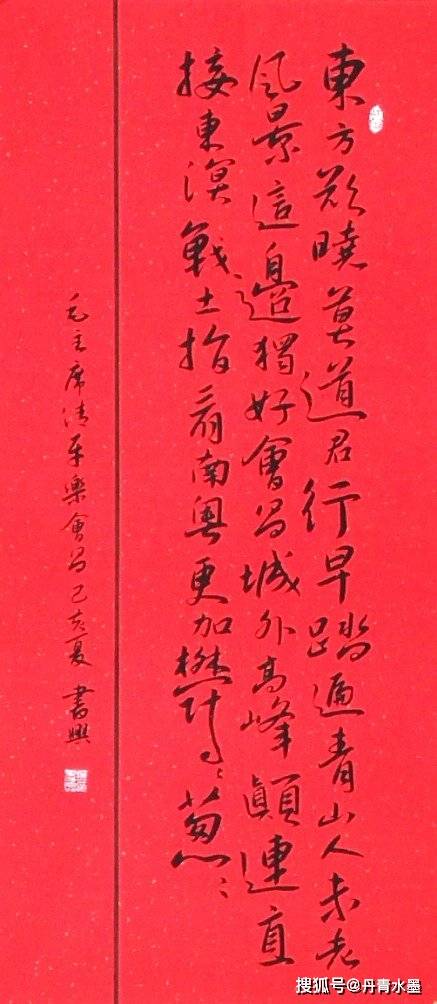 東方欲曉莫道君行早踏遍青山人未老
風景這邊獨好會昌城外高峰顛連直
接東溟戰士指看南粵更加欝〻葱〻
毛主席清平樂會昌己亥夏書興
搜狐号@丹青水墨